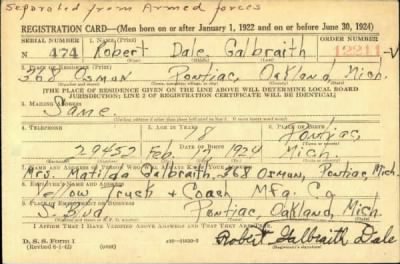 Separated from Armed forces
REGISTRATION CARD—(Men born on or after January 1, 1922 and on or before June 30, 1924)
SERIAL NUMBER 1. NAME (Print) ORDER NUMBER
N 474 Robert Dale Galbraith 12211-V
2. PLACE OF RESIDENCE (Print)
368 Osmun Pontiac, Oakland Mich.
[THE PLACE OF RESIDENCE GIVEN ON THE LINE ABOVE WILL DETERMINE LOCAL BOARD
JURISDICTION; LINE 2 OF REGISTRATION CERTIFICATE WILL BE IDENTICAL]
3. MAILING ADDRESS
Same
4. TELEPHONE 5. AGE IN YEARS 6. PLACE OF BIRTH
18 Pontiac
DATE OF BIRTH
29452 Feb 1924 Mich
7. NAME AND ADDRESS OF PERSON WHO WILL ALWAYS KNOW YOUR ADDRESS
Mrs. Matilda Galbraith, 368 Osmun, Pontiac, Mich.
8. EMPLOYER'S NAME AND ADDRESS
Yellow Truck & Coach Mfg. Co
9. PLACE OF EMPLOYMENT OR BUSINESS
S. Blvd Pontiac, Oakland, Mich.
I AFFIRM THAT I HAVE VERIFIED ABOVE ANSWERS AND THAT THEY ARE TRUE.
D. S. S. Form 1
(Revised 6-9-42) (over)
Robert Galbraith Dale
(Registrant's signature)